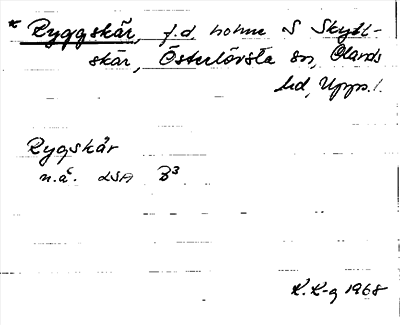 * Ryggskär, f.d. holme S Skytt-
skär, Österlövsta sn, Olands
hd, Upps. l.
Rygskär
n.ä. LSA B3
K. K-g 1968